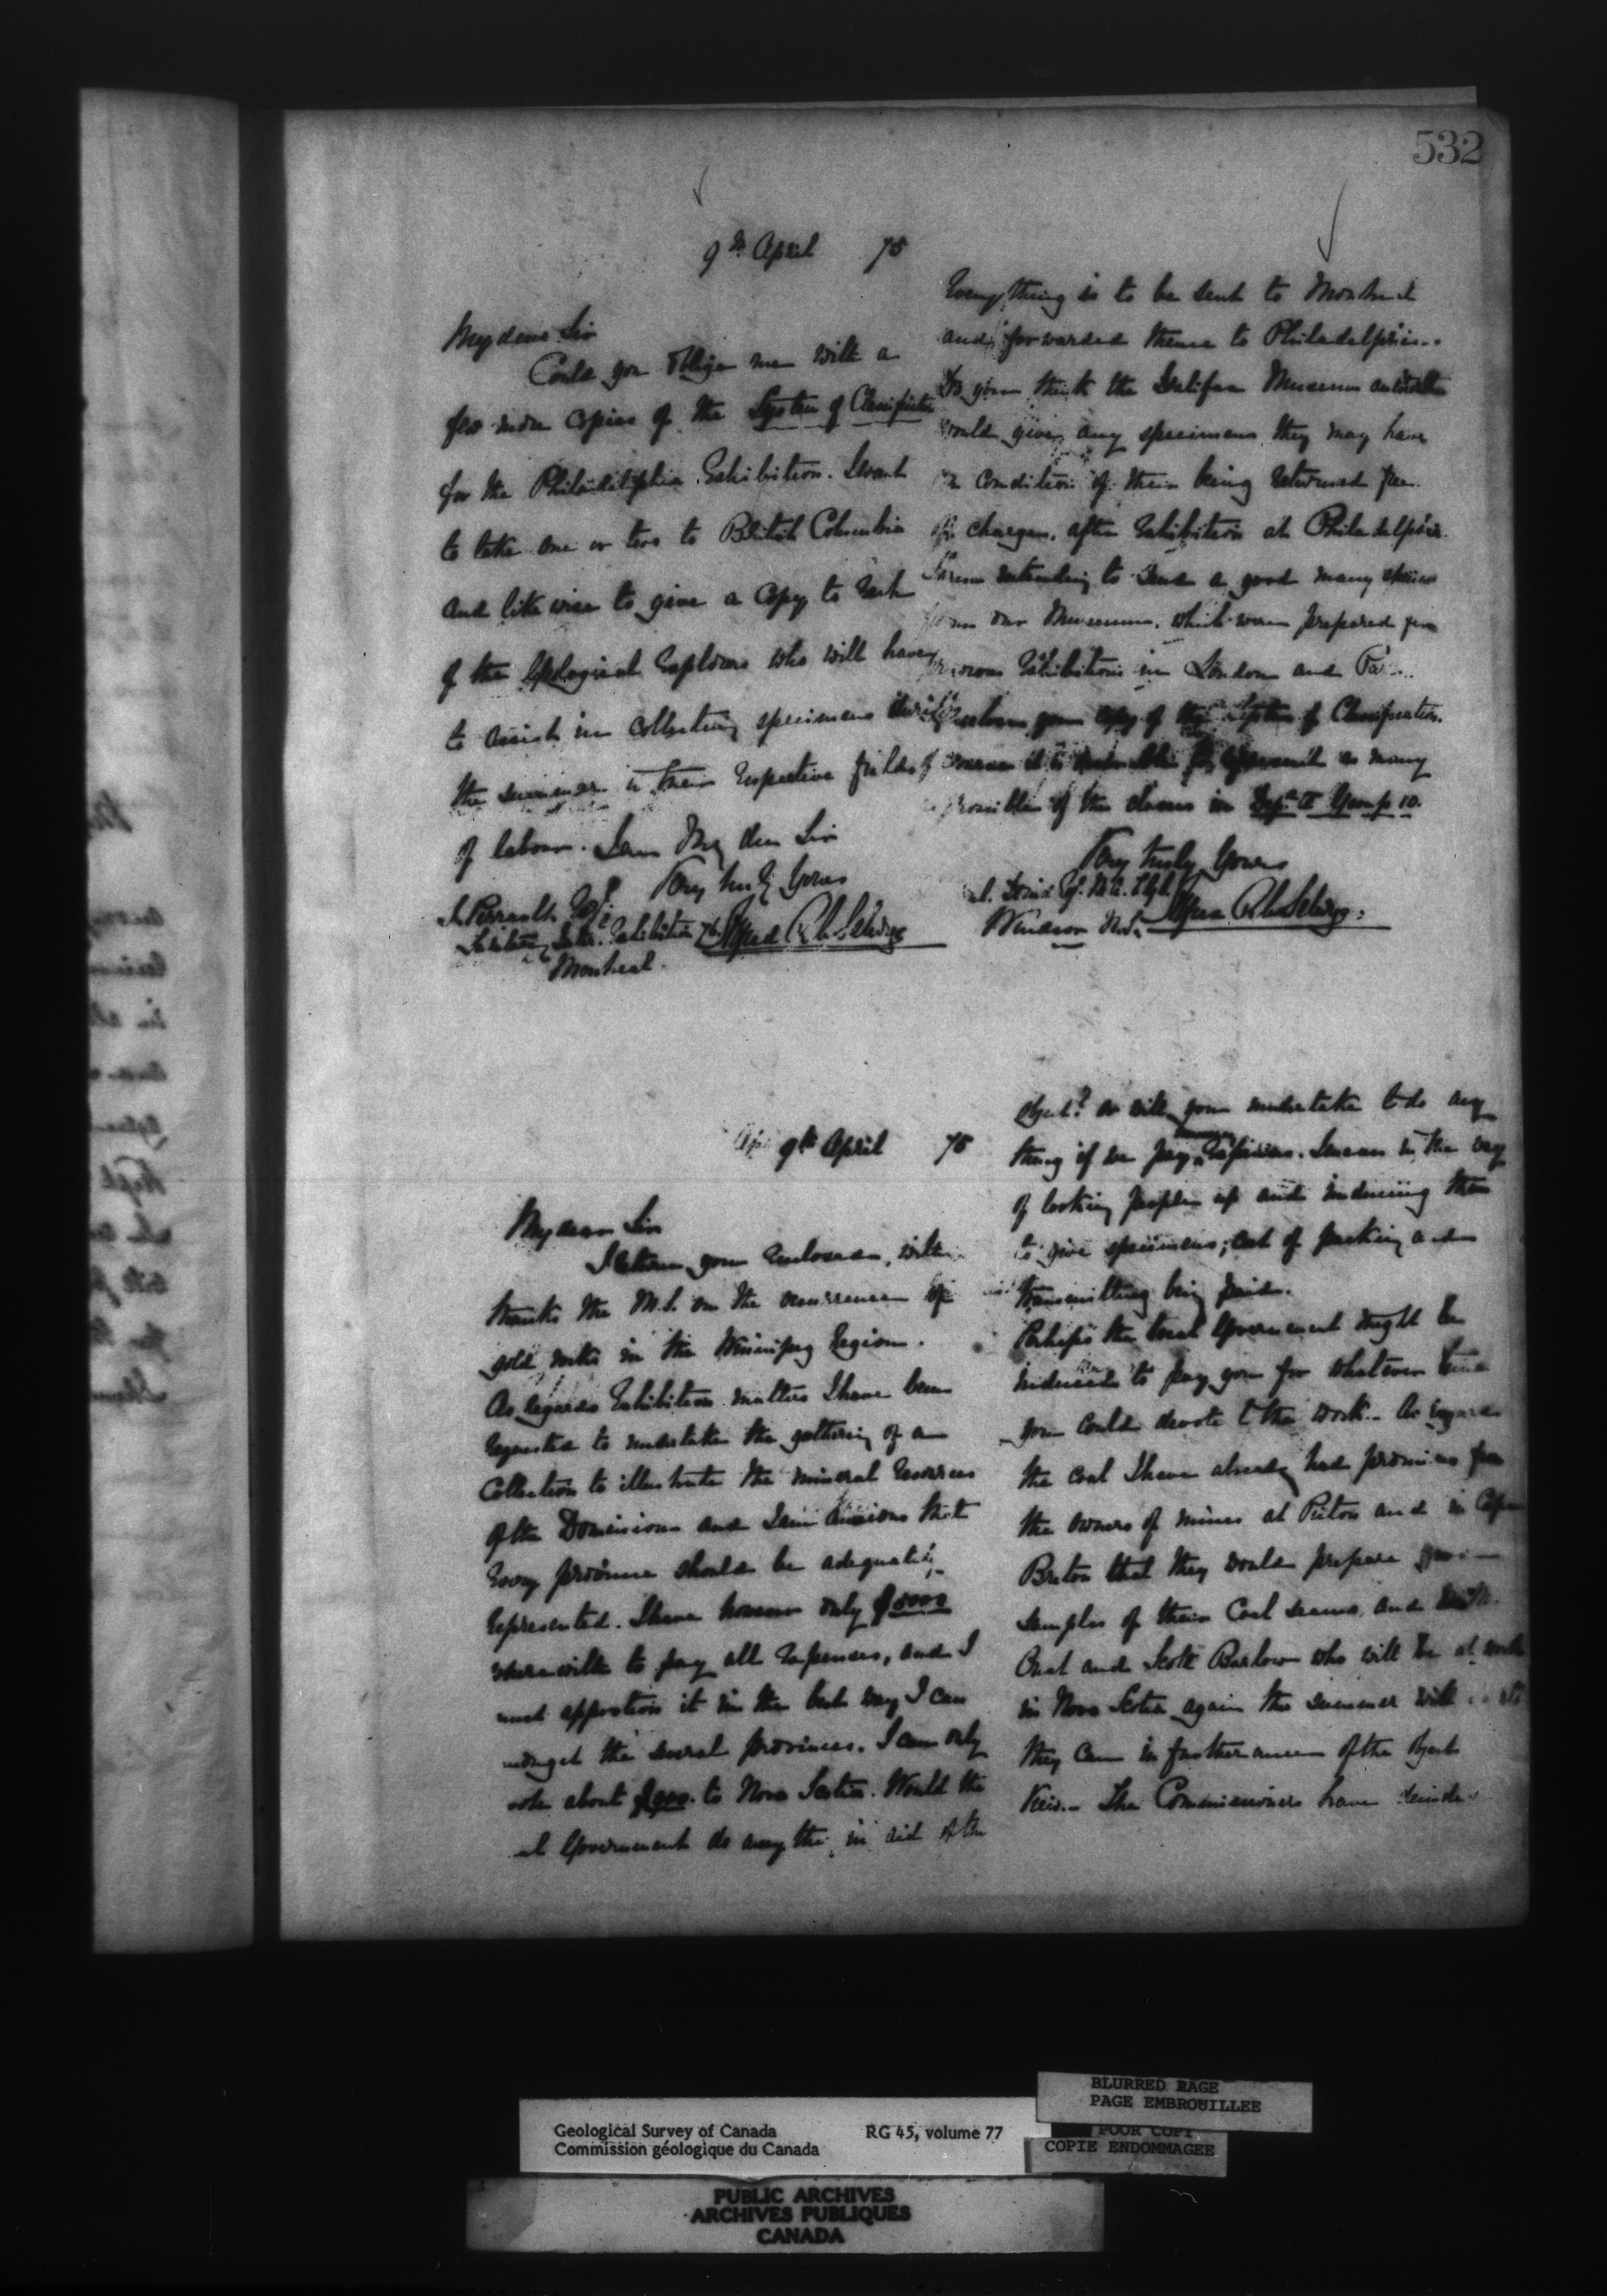 532
9th April 75
My dear Sir
Could you oblige me with a
few more copies of the System of Classification
for the Philadelphia Exhibition. I want
to take one or two to British Columbia
and likewise to give a copy to each
of the Geological Explorers who will have
to assist in collecting specimens during
the summer in their respective fields
of labour. I am My dear Sir
Very truly Yours
Alfred R. C. Selwyn
J. Perrault Esq
Secretary Inter. Exhibition
Montreal.
9th April 75
My dear Sir
I return your enclosure, with
thanks the M.S. on the occurrence of
gold in the Winnipeg Region.
As regards Exhibition matters I have been
requested to undertake the gathering of a
Collection to illustrate the mineral resources
of the Dominion and I am anxious that
every province should be adequately
represented. I have however only
wherewith to pay all expenses, and I
must apportion it in the best way I can
amongst the several provinces. I can only
about to Nova Scotia. Would the
Government do anything in aid of the
object? or will you undertake to do any
thing if we pay expenses. I mean in the way
of looking people up and inducing them
to give specimens; cost of packing and
transmitting being paid.
Perhaps the local Government might be
induced to pay you for whatever time
you could devote to the work. As regards
the coal I have already had promises from
the owners of mines at Pictou and in Cape
Breton that they would prepare
samples of their Coal seams, and
and Scott Barlow who will be at work
in Nova Scotia again this summer will
they can in furtherance of the object
view. The Commissioners have
Everything is to be sent to Montreal
and forwarded thence to Philadelphia.
Do you think the Halifax Museum authorities
would give any specimens they may have
on condition of their being returned free
of charges, after Exhibition at Philadelphia.
I am intending to send a good many specimens
from our Museum, which were prepared for
previous Exhibitions in London and
your copy of the System of Classification.
as many
as possible of the classes in Group 10.
Very truly Yours
Alfred R. C. Selwyn
Windsor N.S.
Geological Survey of Canada RG 45, volume 77
Commission géologique du Canada
BLURRED PAGE
PAGE EMBROUILLEE
POOR COPY
COPIE ENDOMMAGEE
PUBLIC ARCHIVES
ARCHIVES PUBLIQUES
CANADA